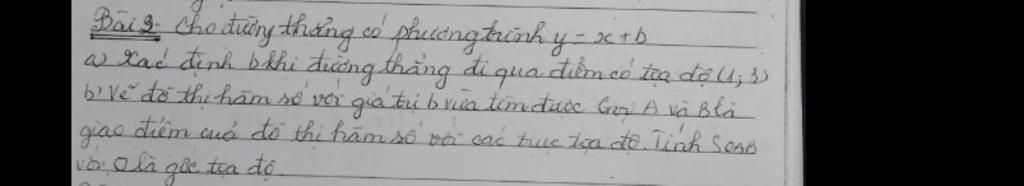 Bài 2- Cho đường thẳng có phương trình y = x + b
a) Xác định b khi đường thẳng đi qua điểm có tọa độ (1; 3)
b) Vẽ đồ thị hàm số với giá trị b vừa tìm được. Gọi A và B là
giao điểm cuả đồ thị hàm số với các trục tọa độ. Tính SOAB
với O là gốc tọa độ.